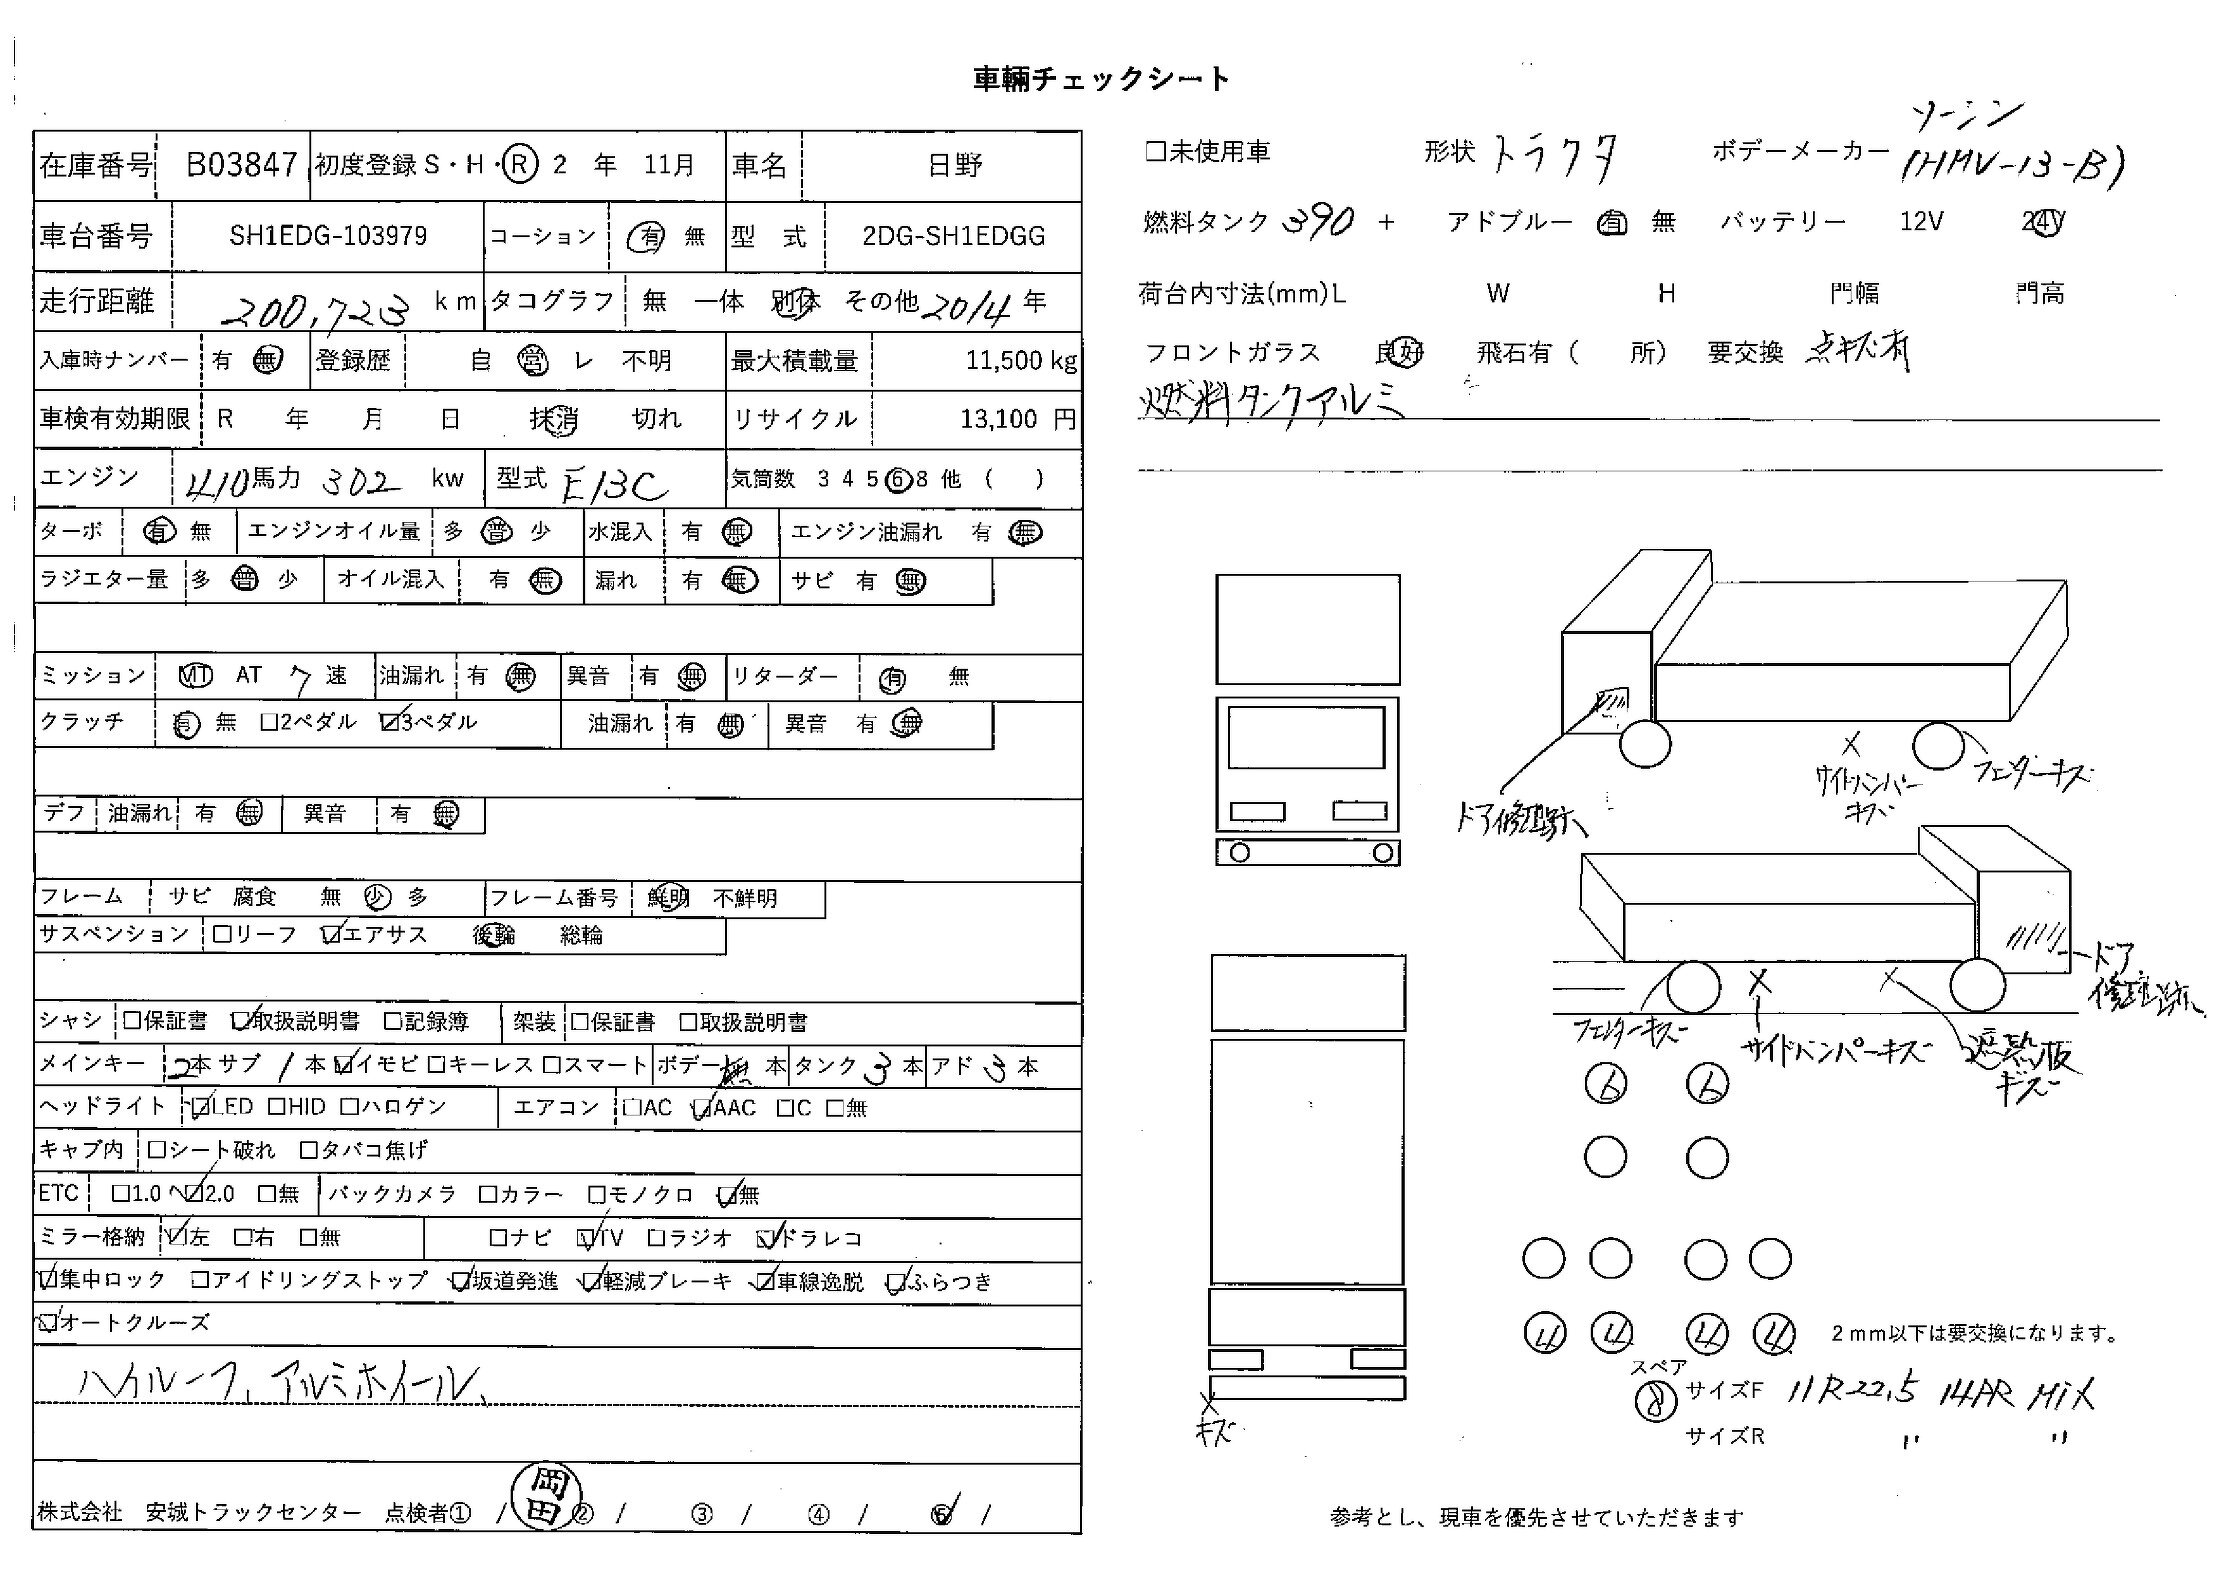 車輛チェックシート
在庫番号 B03847 初度登録 S・H・R 2 年 11月 車名 日野
車台番号 SH1EDG-103979 コーション 有 無 型 式 2DG-SH1EDGG
走行距離 200,723 km タコグラフ 無 一体 別体 その他 2014 年
入庫時ナンバー 有 無 登録歴 自 営 レ 不明 最大積載量 11,500 kg
車検有効期限 R 年 月 日 抹消 切れ リサイクル 13,100 円
エンジン 410 馬力 302 kw 型式 E13C 気筒数 3 4 5 6 8 他 ( )
ターボ 有 無 エンジンオイル量 多 普 少 水混入 有 無 エンジン油漏れ 有 無
ラジエター量 多 普 少 オイル混入 有 無 漏れ 有 無 サビ 有 無
ミッション MT AT 7 速 油漏れ 有 無 異音 有 無 リターダー 有 無
クラッチ 有 無 □2ペダル ☑3ペダル 油漏れ 有 無 異音 有 無
デフ 油漏れ 有 無 異音 有 無
フレーム サビ 腐食 無 少 多 フレーム番号 鮮明 不鮮明
サスペンション □リーフ ☑エアサス 後輪 総輪
シャシ □保証書 ☑取扱説明書 □記録簿 架装 □保証書 □取扱説明書
メインキー 2本 サブ 1 本 ☑イモビ □キーレス □スマート ボデー 無 本 タンク 3 本 アド 3 本
ヘッドライト ☑LED □HID □ハロゲン エアコン □AC ☑AAC □C □無
キャブ内 □シート破れ □タバコ焦げ
ETC □1.0 ☑2.0 □無 バックカメラ □カラー □モノクロ ☑無
ミラー格納 ☑左 □右 □無 □ナビ ☑TV □ラジオ ☑ドラレコ
☑集中ロック □アイドリングストップ ☑坂道発進 ☑軽減ブレーキ ☑車線逸脱 ☑ふらつき
☑オートクルーズ
ハイルーフ、アルミホイール、
株式会社 安城トラックセンター 点検者① / 岡田 ② / ③ / ④ / ⑤ /
□未使用車 形状 トラクタ ボデーメーカー ソーシン
(HMV-13-B)
燃料タンク 390 + アドブルー 有 無 バッテリー 12V 24V
荷台内寸法(mm)L W H 門幅 門高
フロントガラス 良好 飛石有 ( 所) 要交換 点キズ有
燃料タンクアルミ
ドア修理跡
サイドバンパー
キズ
フェンダーキズ
ドア
修理跡
フェンダーキズ
サイドバンパーキズ
遮熱板
キズ
6 6
4 4 4 4 2mm以下は要交換になります。
スペア
8 サイズF 11R22.5 14PR MIX
サイズR 〃 〃
キズ
参考とし、現車を優先させていただきます